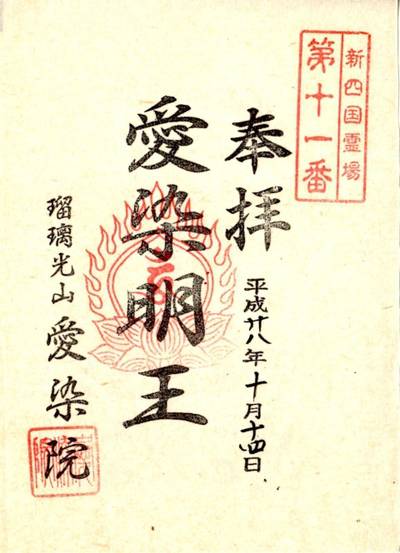 新四国霊場
第十一番
奉拝
平成廿八年十月十四日
愛染明王
瑠璃光山愛染院